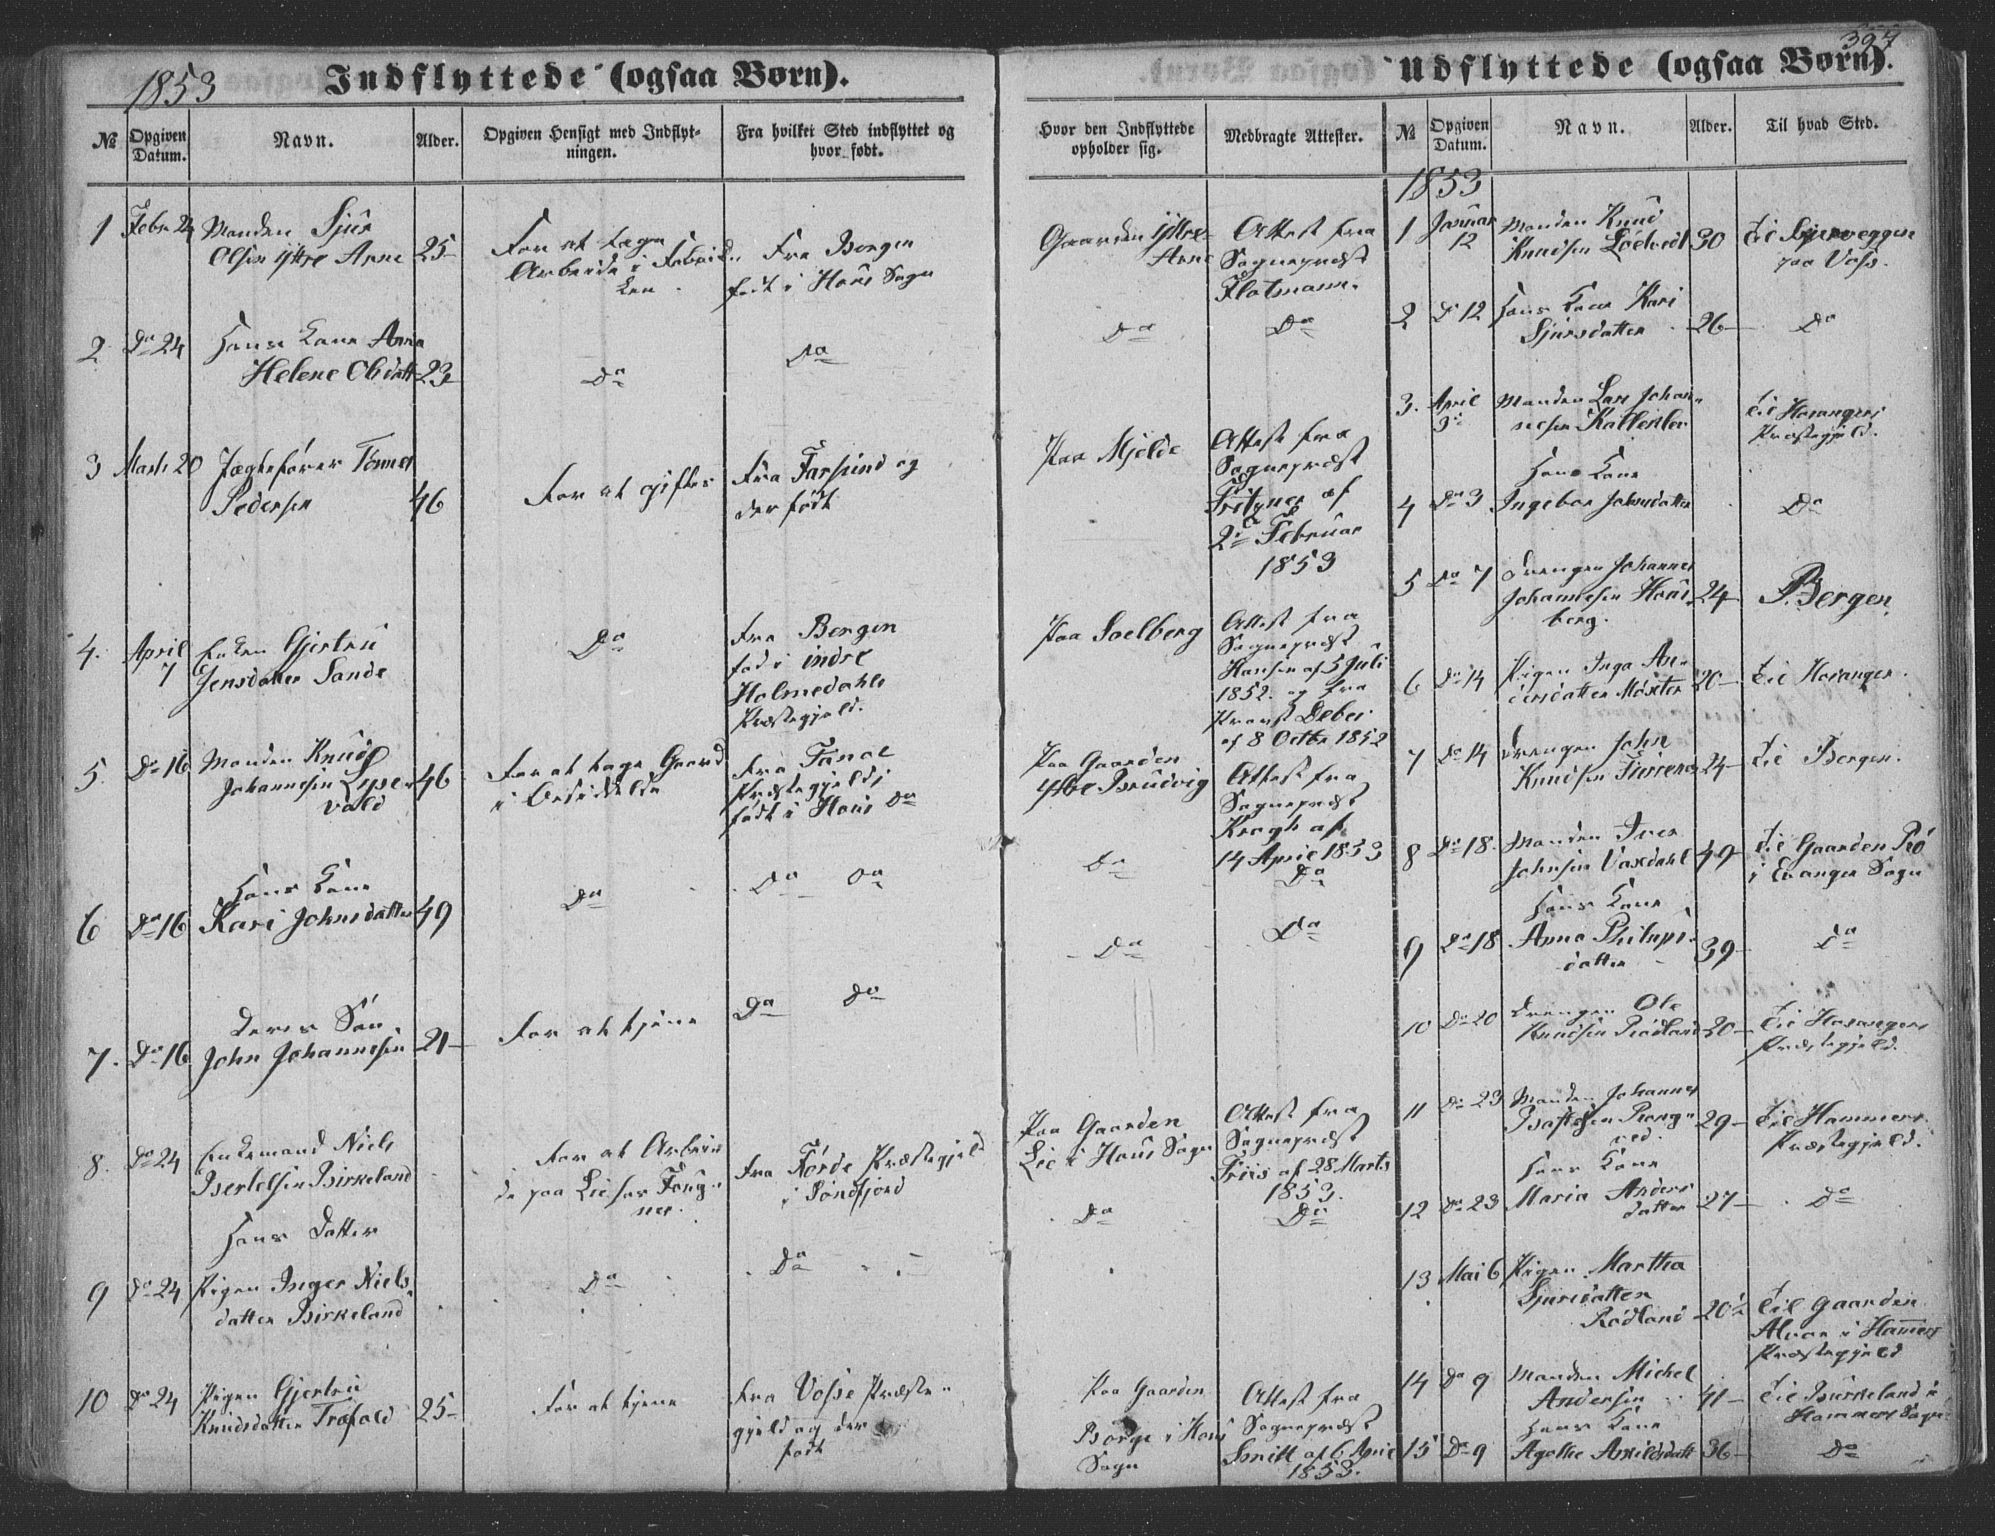 397
1853
Indflyttede (ogsaa Børn).
Udflyttede (ogsaa Børn).
№ Opgiven Datum. Navn. Alder. Opgiven Hensigt med Indflyt- Fra hvilket Sted indflyttet og
ningen. hvor født.
Hvor den Indflyttede Medbragte Attester. № Opgiven Datum. Navn. Alder. Til hvad Sted.
opholder sig.
1 Febr 24 Manden Sjur
Olsen Ytre Arne 25
For at tage
Arbeide i Fabrik-
ken.
Fra Bergen
født i Hous Sogn
Gaarden Ytre-
Arne
Attest fra
Sognepræst
2 Do 24 Hans Kone Anna
Helene Olsdatt 23
Do
Do
Do
Do
3 Marts 20 Jægtefører Tønnes
Pedersen 46
For at giftes
Fra Farsund og
der født
Paa Mjelde
Attest fra
Sognepræst
Fritzner af
2d Februar
1853
4. April 7 Enken Gjertru
Jensdatter Sande
Do
Fra Bergen
fød i indre
Holmedahls
Præstegjeld.
Paa Soelberg
Attest fra
Sognepræst
Hansen af 5 Juli
1852. og fra
Provst
af 8 Octbr 1852
5. Do 16 Manden Knud
Johannesen
vold 46
For at tage Gaard
i Besiddelse
Fra Fane
Præstegjeld,
født i Hous Do
Paa Gaarden
Ytre Brudvig
Attest fra
Sognepræst
Kragh af
14 April 1853
6 Do 16 Hans Kone
Kari Johnsdatter 49
Do
Do Do
Do
Do
7. Do 16 Deres Søn
John Johannesen 21
For at tjene
Do Do
Do
Do
8. Do 24 Enkemand Niels
Bertelsen Birkeland
For at Arbei-
de paa
Fra Førde Præstegjeld
i Søndfjord
Paa Gaarden
Lie i Hous Sogn
Attest fra
Sognepræst
Friis af 28 Marts
1853.
9 Do 24 Hans Datter
Pigen Inger Niels-
datter Birkeland
Do
Do
Do
Do
10 Do 24 Pigen Gjertru
Knudsdatter Træfald 25
For at tjene
Fra Vosse Præste-
gjeld og der
født
Paa Gaarden
Borge i Hous
Sogn
Attest fra
Sognepræst
Smitt af 6 April
1853.
1853
1 Januar 12 Manden Knud
Knudsen 30
paa Voss.
2 Do 12 Hans Kone Kari
Sjursdatter 26
Do
3. April 3d Manden Lars Johan-
nesen
til Hosangers
Præstegjeld.
4 Do 3 Hans Kone
Ingebor Johnsdatter
Do
5 Do 7 Drengen Johannes
Johannesen Hous-
berg. 24
Bergen.
6 Do 14 Pigen Inga An-
dersdatter 20
til Hosanger.
7 Do 14 Drengen John
Knudsen 24
til Bergen.
8 Do 18. Manden Iver
Johnsen Vaxdahl 49
til Gaarden
i Evanger Sogn
9 Do 18 Hans Kone
Anna Philips-
datter 39
Do
10 Do 20 Drengen Ole
Knudsen Rødland 20
til Hosangers
Præstegjeld.
11 Do 23 Manden Johannes
29
til Hammers
Præstegjeld.
12 Do 23 Hans Kone
Maria Anders
datter 27
Do
13 Mai 6 Pigen Martha
Sjursdatter
Rødland 20½
til Gaarden
i Hammers
Præstegjeld
14 Do 9 Manden Michel
Andersen 41
til Birkeland i
Hammers Sogn
15 Do 9 Hans Kone
Agathe 36
Do